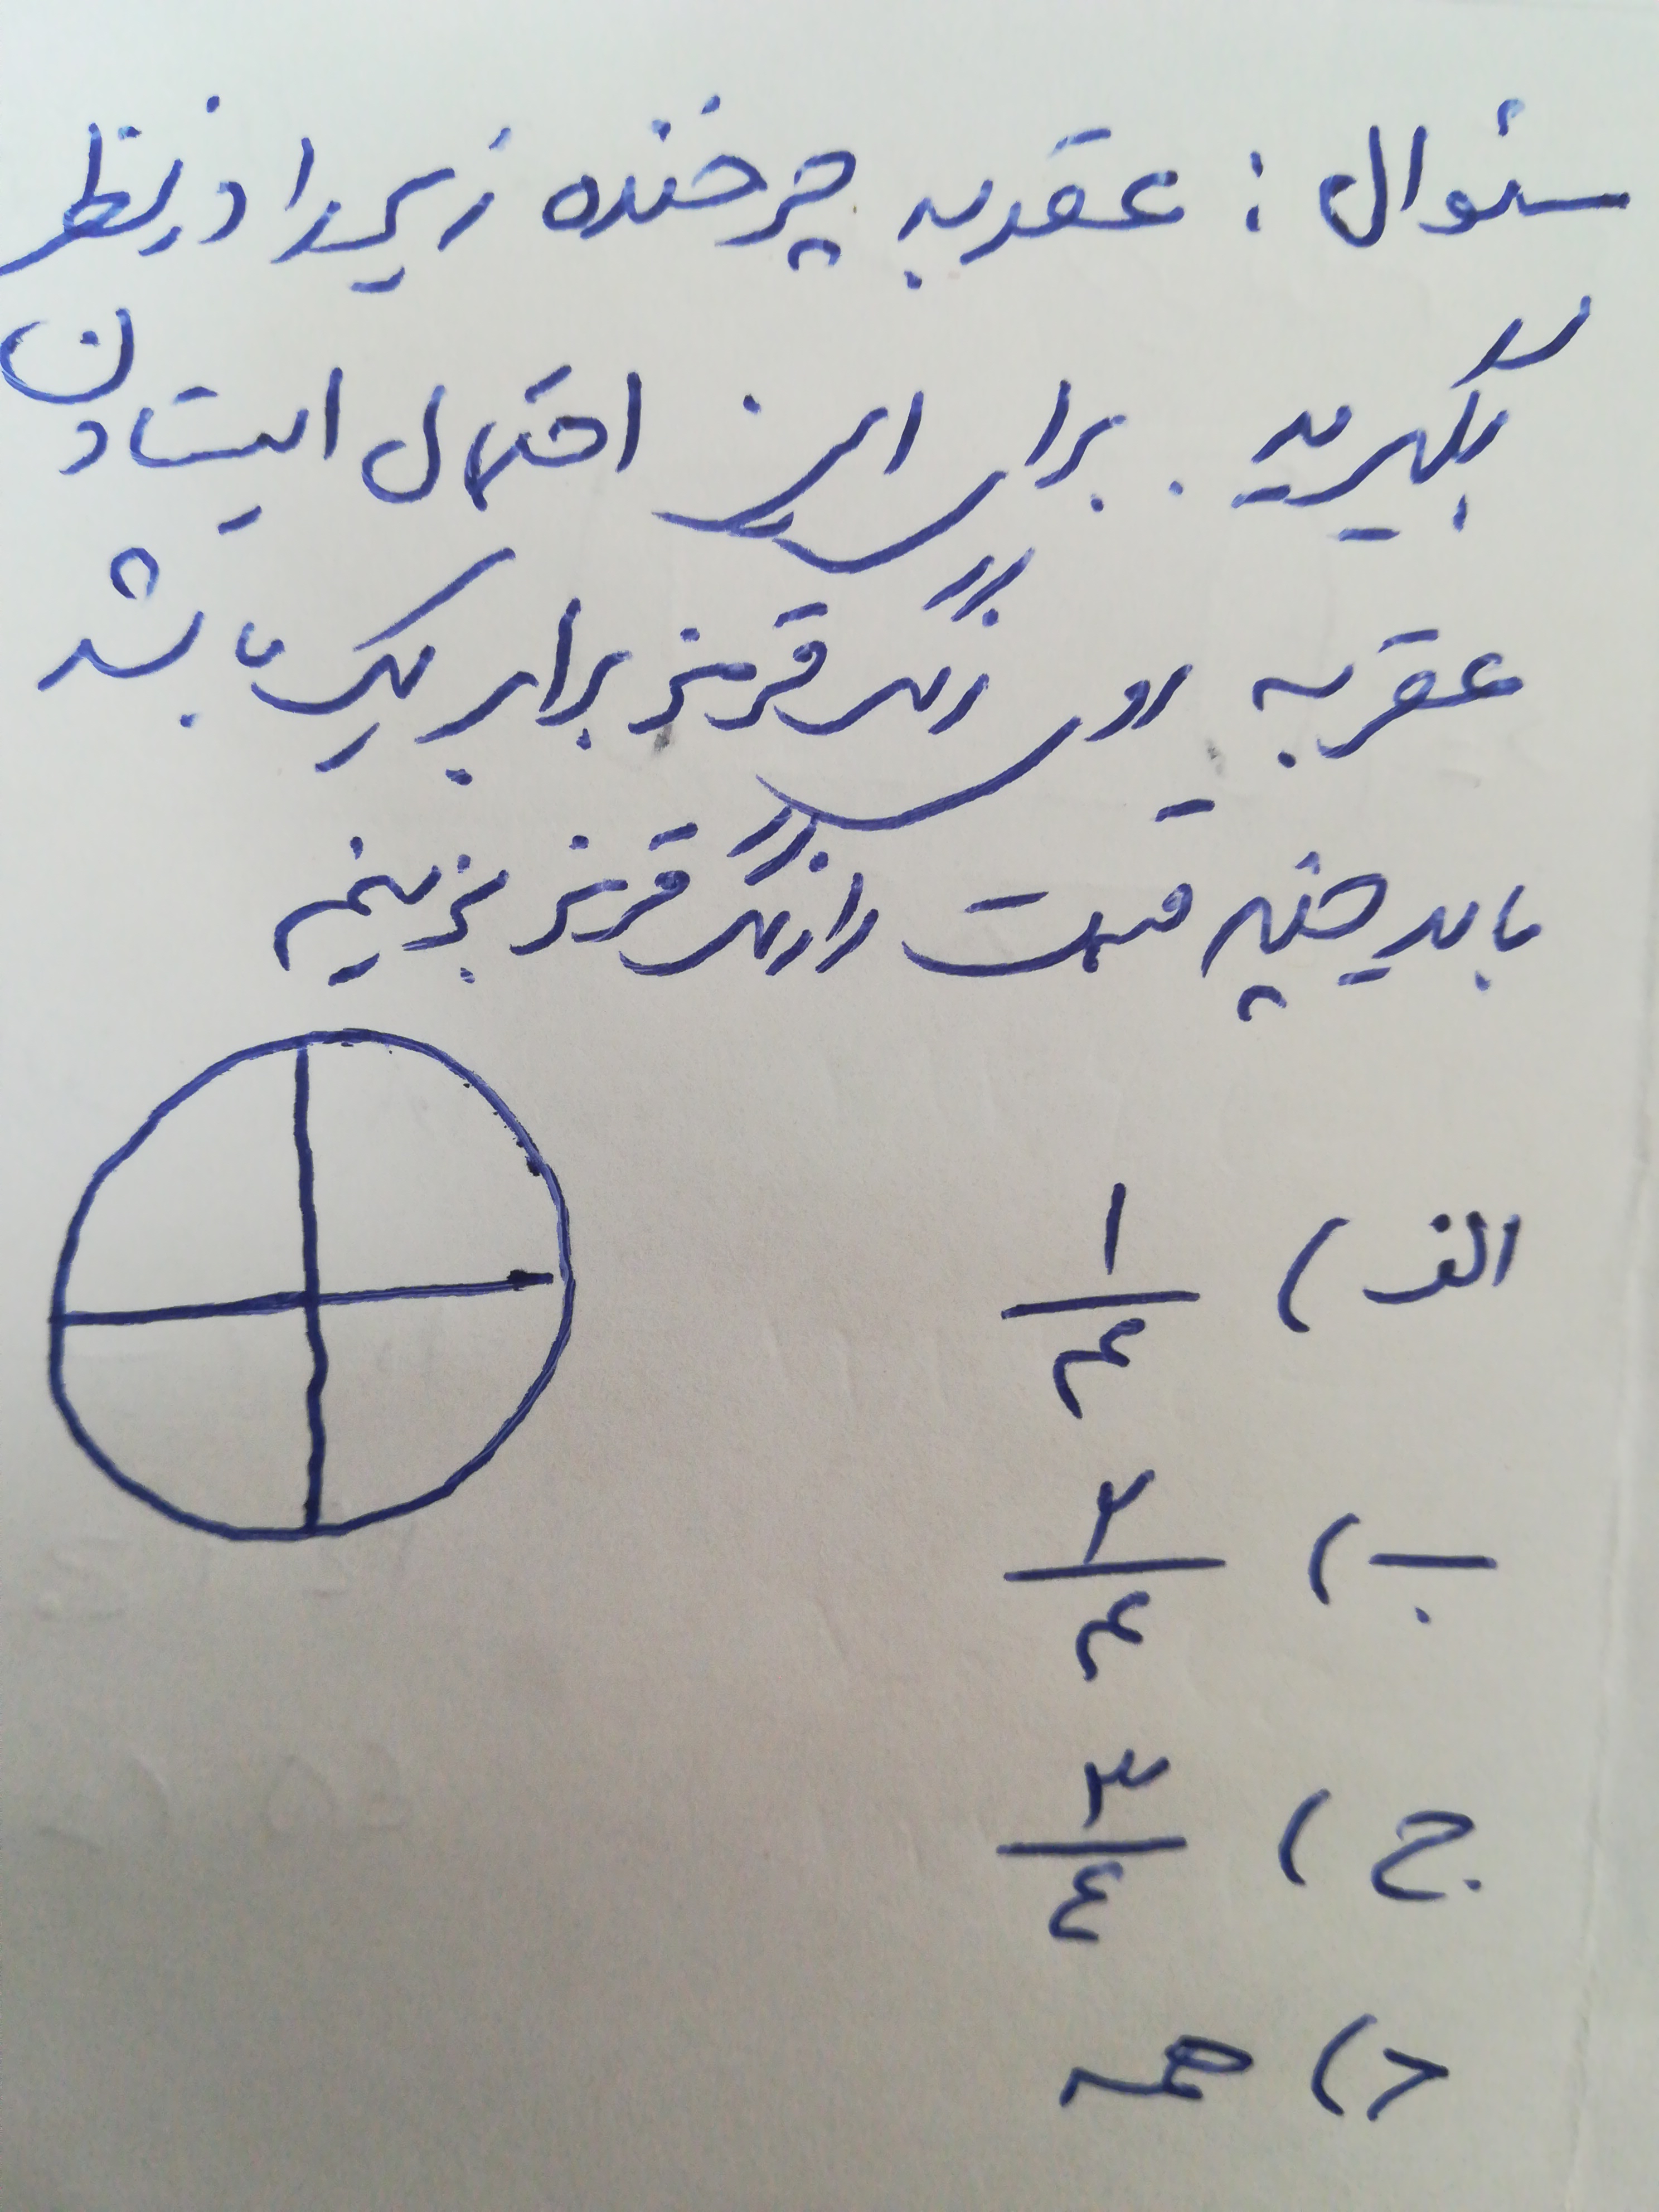 سئوال : عقربه چرخنده زیر را در نظر
بگیرید . برای این احتمال ایستادن
عقربه روی رنگ قرمز برابر یک باشد
باید چند قسمت را رنگ قرمز بزنیم
الف ) ۱/۴
ب ) ۲/۴
ج ) ۳/۴
د ) همه